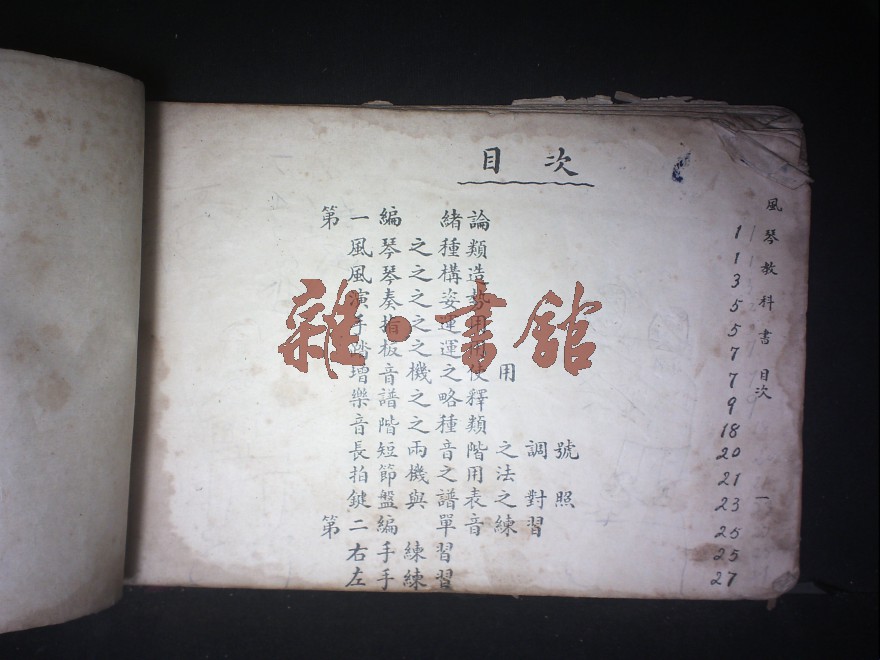 目次
第一編 緒論 1
風琴之種類 1
風琴之構造 3
演奏之姿勢 5
手指之運用 5
踏板之運用 7
增音機之使用 7
樂譜之略釋 9
音階之種類 18
長短兩音階之調號 20
拍節機之用法 21
鍵盤與譜表之對照 23
第二編 單音練習 25
右手練習 25
左手練習 27
風琴教科書 目次 一
雜·書館